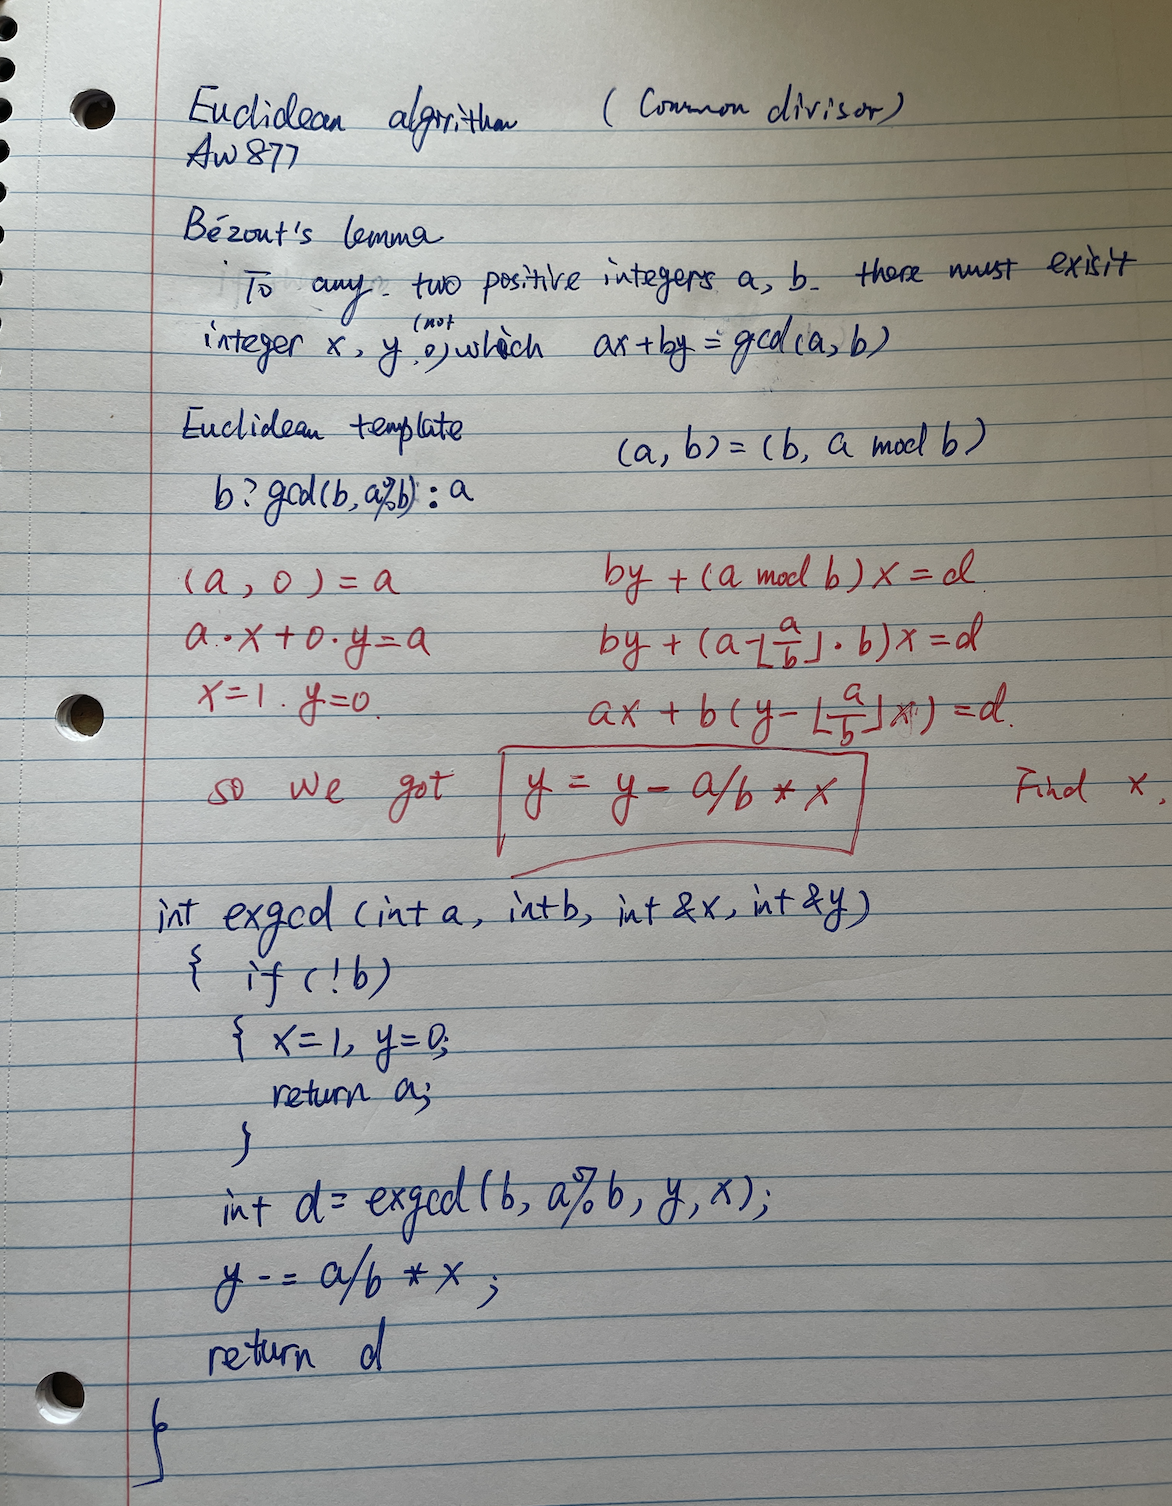 Euclidean algorithm (Common divisor)
AW 877
Bézout's lemma
To any two positive integers a, b. there must exisit
integer x, y (not 0) which ax+by = gcd(a, b)
Euclidean template
(a, b) = (b, a mod b)
b? gcd(b, a%b) : a
(a, 0) = a
a·x+0·y=a
x=1. y=0.
by + (a mod b) x = d
by + (a-⌊a/b⌋·b)x=d
ax + b(y-⌊a/b⌋x) = d.
so we got y = y - a/b * x Find x,
int exgcd (int a, int b, int &x, int &y)
{ if (!b)
{ x=1, y=0;
return a;
}
int d= exgcd (b, a%b, y, x);
y -= a/b * x ;
return d
}